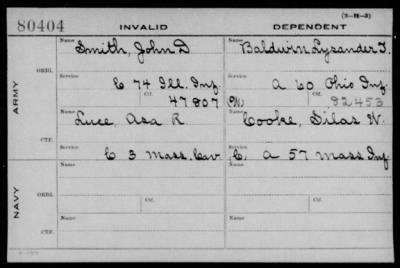 80404 INVALID DEPENDENT (3-H-3)
Name Name
Smith, John D Baldwin Lysander T.
ORIG.
Service Service
C 74 Ill. Inf. A 60 Ohio Inf.
Ctf. 47807 (W) Ctf. 92453
ARMY
Name Name
Luce, Asa R Cooke, Silas N.
CTF.
Service Service
C 3 Mass. Cav C. A 57 Mass Inf.
Name Name
ORIG.
Service Ctf. Service Ctf.
NAVY
Name Name
CTF.
Service Service